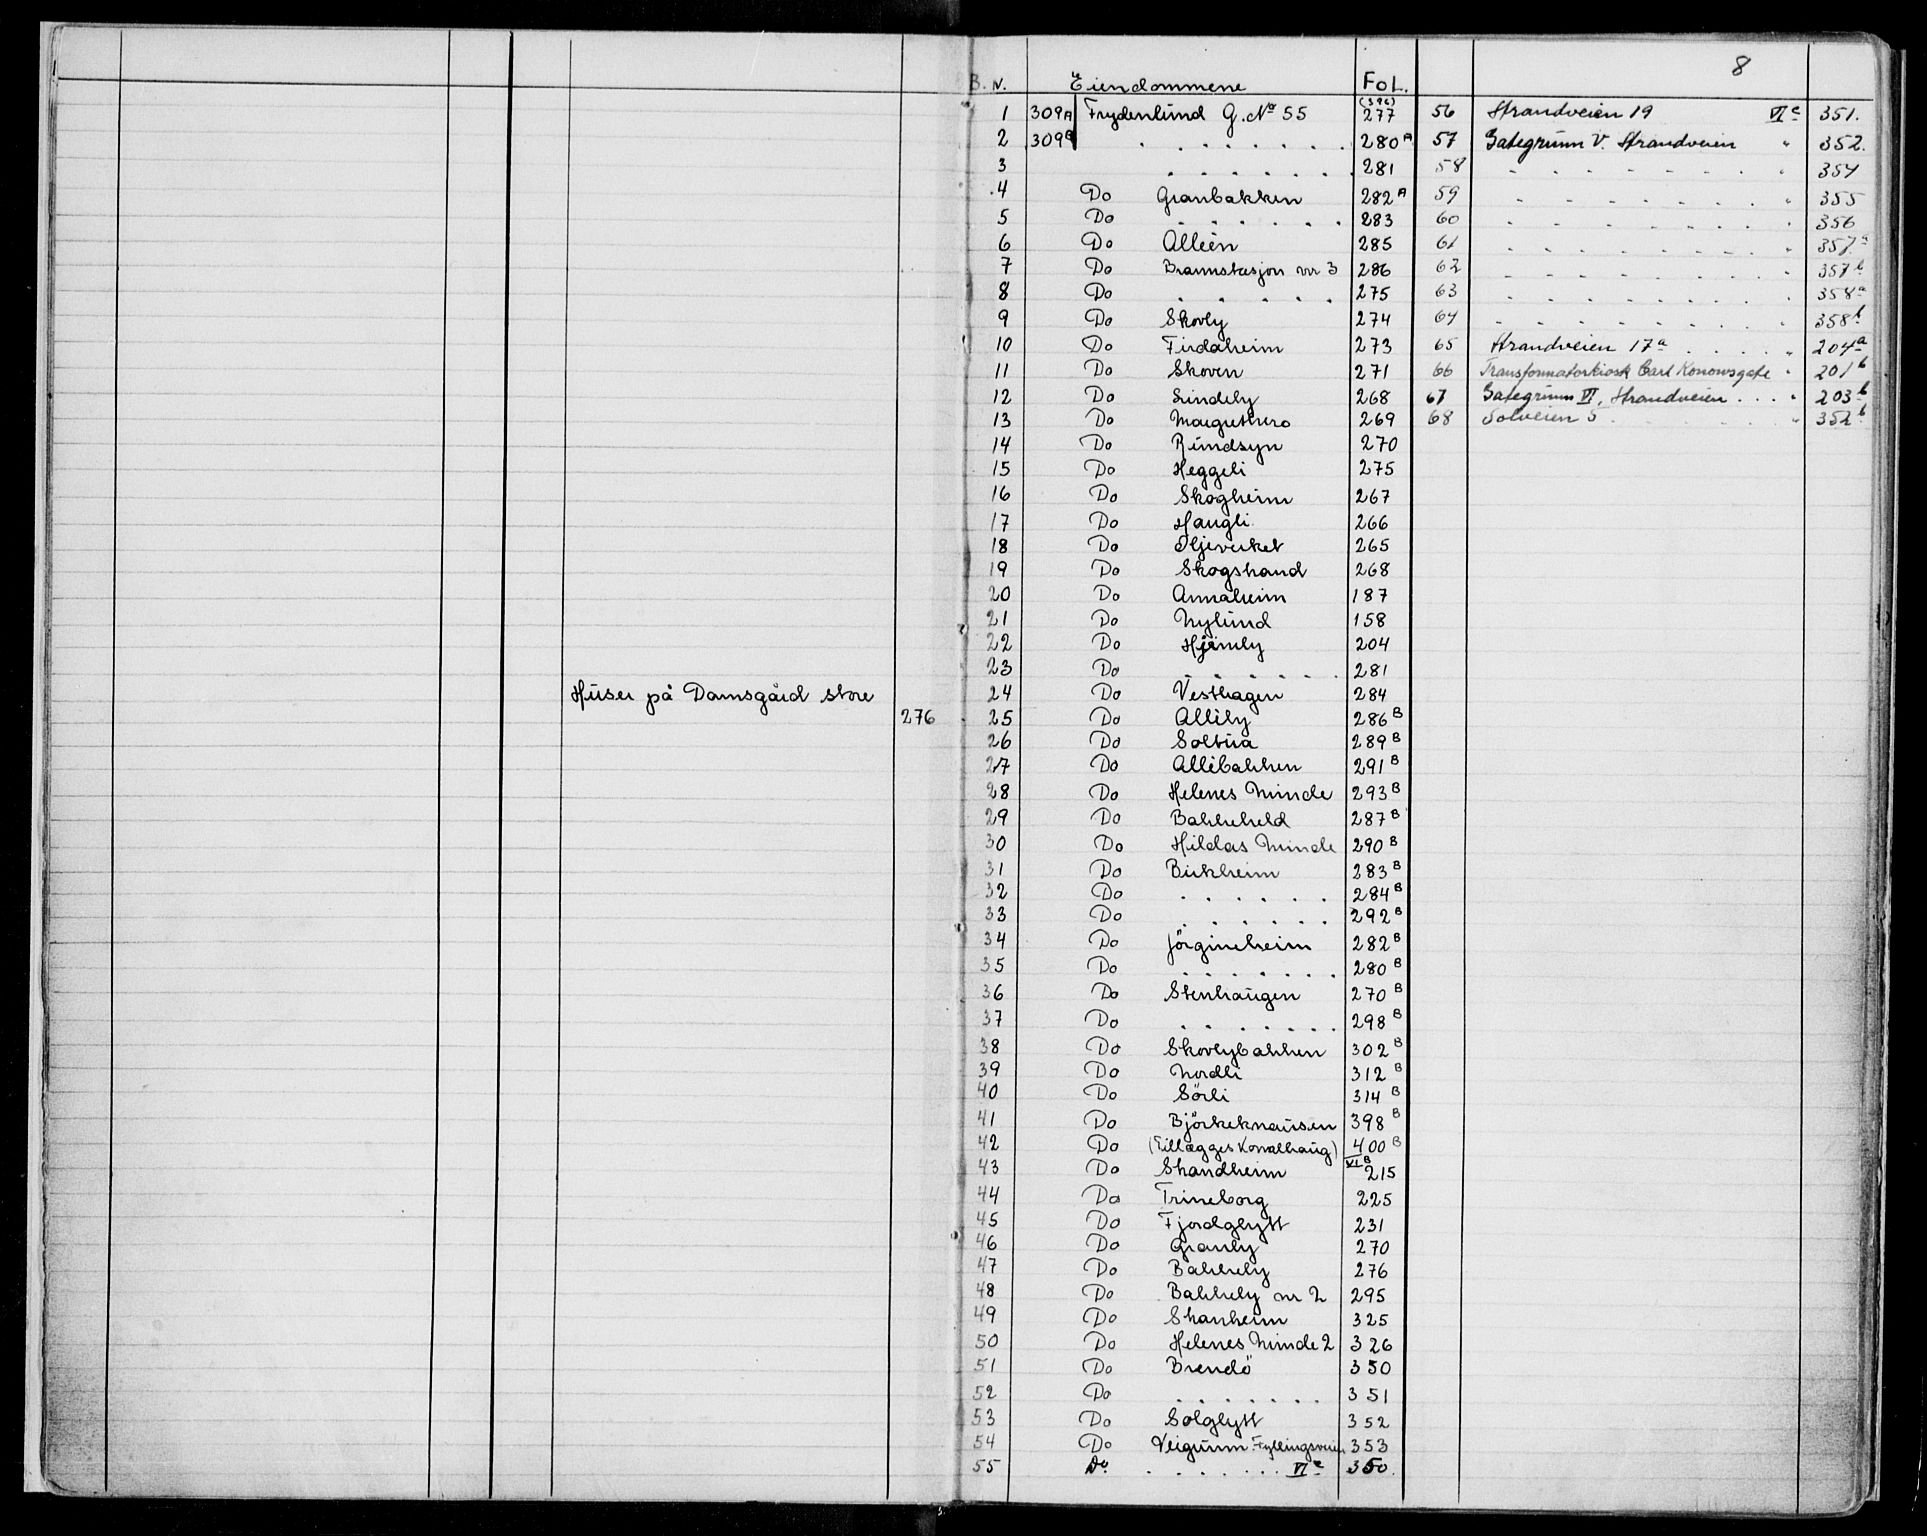 Huser på Damsgård store
276
8
B. N. Eiendommene Fol.
1 309A Frydenlund G. No 55 (396) 277
2 309B . . . . . . . 280 A
3 . . . . . . . 281
4 Do Granbakken 282 A
5 Do . . . . . . 283
6 Do Alleen 285
7 Do Brannstasjon nr 3 286
8 Do . . . . . . 275
9 Do Skovly 274
10 Do Firdaheim 273
11 Do Skoven 271
12 Do Lindely 268
13 Do Margrethero 269
14 Do Rundsyn 270
15 Do Heggeli 275
16 Do Skogheim 267
17 Do Haugli 266
18 Do Oljeverket 265
19 Do Skogstrand 268
20 Do Annaheim 187
21 Do Nylund 158
22 Do Hjemly 204
23 Do . . . . . . 281
24 Do Vesthagen 284
25 Do Allély 286 B
26 Do Soltua 289 B
27 Do Allébakken 291 B
28 Do Helenes Minde 293 B
29 Do Bakkeheld 287 B
30 Do Hildas Minde 290 B
31 Do Birkheim 283 B
32 Do . . . . . . 284 B
33 Do . . . . . . 292 B
34 Do Jörgineheim 282 B
35 Do . . . . . . . 280 B
36 Do Stenhaugen 270 B
37 Do . . . . . . 298 B
38 Do Skovlybakken 302 B
39 Do Nordli 312 B
40 Do Sörli 314 B
41 Do Björkeknausen 398 B
42 Do (Tillægges Konvalhaug) 400 B
43 Do Strandheim VI B 215
44 Do Trineborg 225
45 Do Fjordglytt 231
46 Do Granly 270
47 Do Bakkely 276
48 Do Bakkely nr 2 295
49 Do Skanheim 325
50 Do Helenes Minde 2 326
51 Do Brendö 350
52 Do . . . . . . . 351
53 Do Solglytt 352
54 Do Veigrunn Fyllingsveien 353
55 Do . . . . . . . VI c 350.
56 Strandveien 19 VI c 351.
57 Gategrunn V. Strandveien " 352.
58 - - - - - - - - " 354
59 - - - - - - - - " 355
60 - - - - - - - - " 356
61 - - - - - - - - " 357 a
62 - - - - - - - - " 357 b
63 - - - - - - - - " 358 a
64 - - - - - - - - " 358 b
65 Strandveien 17 a . . . . . " 204 a
66 Transformatorkiosk Carl Konowsgate " 201 b
67 Gategrunn VI, Strandveien . . . " 203 b
68 Solveien 5 . . . . . . . " 352 b